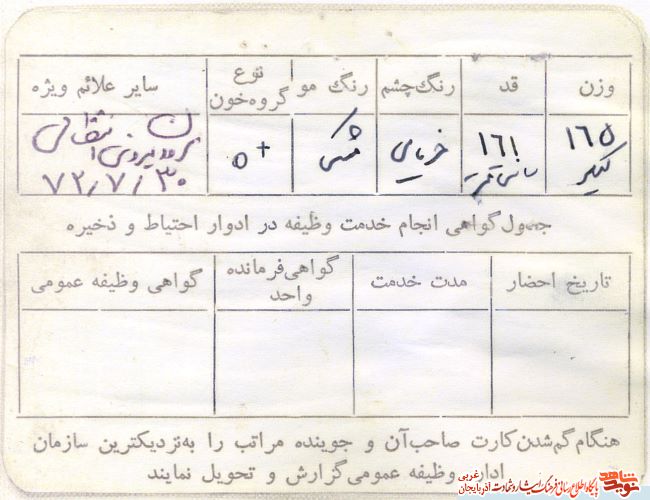 وزن
قد
رنگ‌چشم
رنگ مو
نوع گروه‌خون
سایر علائم ویژه
۱۶۱ سانتیمتر
خرمایی
مشکی
o+
۷۲/۷/۳۰
جدول‌گواهی انجام خدمت وظیفه در ادوار احتیاط و ذخیره
تاریخ احضار
مدت خدمت
گواهی‌فرمانده واحد
گواهی وظیفه عمومی
هنگام‌گم‌شدن‌کارت صاحب‌آن و جوینده مراتب را به‌نزدیکترین سازمان
اداره وظیفه عمومی‌گزارش و تحویل نمایند
نوید شاهد
پایگاه اطلاع رسانی فرهنگ ایثار و شهادت آذربایجان غربی